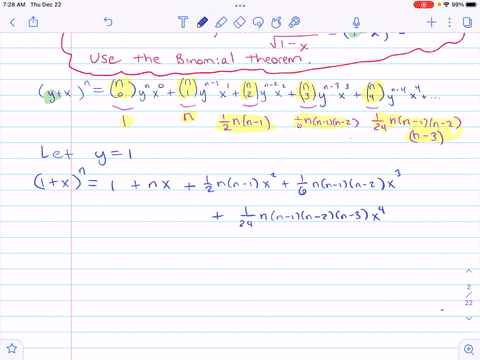 7:28 AM Thu Dec 22
99%
√1-x
Use the Binomial theorem.
(y+x)ⁿ = (n 0) yⁿx⁰ + (n 1) yⁿ⁻¹x¹ + (n 2) yⁿ⁻²x² + (n 3) yⁿ⁻³x³ + (n 4) yⁿ⁻⁴x⁴ + ...
1 n 1/2 n(n-1) 1/6 n(n-1)(n-2) 1/24 n(n-1)(n-2)
(n-3)
Let y=1
(1+x)ⁿ = 1 + nx + 1/2 n(n-1)x² + 1/6 n(n-1)(n-2)x³
+ 1/24 n(n-1)(n-2)(n-3)x⁴
2
/
22